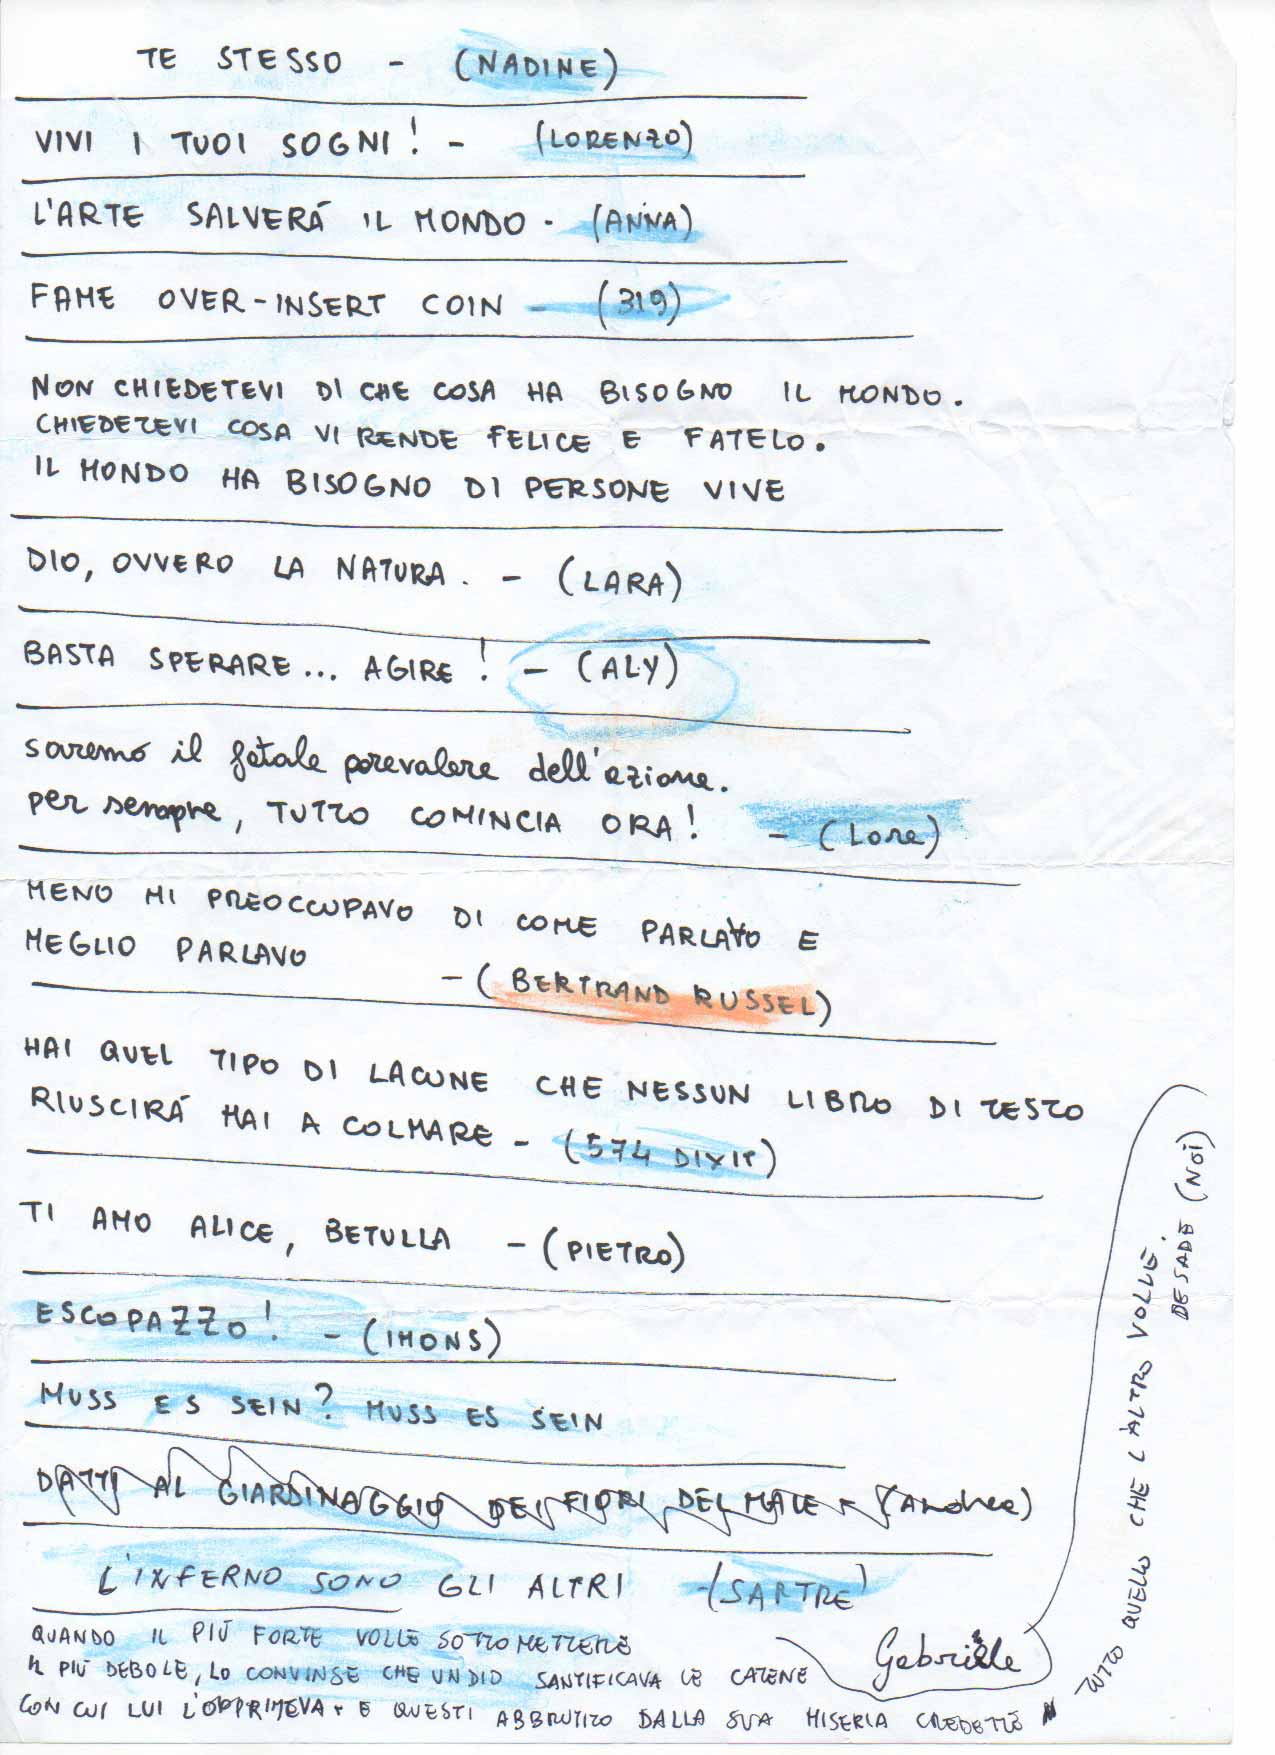 TE STESSO - (NADINE)
VIVI I TUOI SOGNI! - (LORENZO)
L'ARTE SALVERÁ IL MONDO - (ANNA)
FAME OVER-INSERT COIN - (319)
NON CHIEDETEVI DI CHE COSA HA BISOGNO IL MONDO.
CHIEDETEVI COSA VI RENDE FELICE E FATELO.
IL MONDO HA BISOGNO DI PERSONE VIVE
DIO, OVVERO LA NATURA. - (LARA)
BASTA SPERARE... AGIRE! - (ALY)
saremo il fatale prevalere dell'azione.
per sempre, TUTTO COMINCIA ORA! - (Lore)
MENO MI PREOCCUPAVO DI COME PARLAVO E
MEGLIO PARLAVO - (BERTRAND RUSSEL)
HAI QUEL TIPO DI LACUNE CHE NESSUN LIBRO DI TESTO
RIUSCIRÁ MAI A COLMARE - (574 DIXIT)
TI AMO ALICE, BETULLA - (PIETRO)
ESCOPAZZO! - (IMONS)
MUSS ES SEIN? MUSS ES SEIN
DATTI AL GIARDINAGGIO DEI FIORI DEL MALE - (Andrea)
L'INFERNO SONO GLI ALTRI - (SARTRE)
QUANDO IL PIÙ FORTE VOLLE SOTTOMETTERE
IL PIÙ DEBOLE, LO CONVINSE CHE UN DIO SANTIFICAVA LE CATENE
CON CUI LUI L'OPPRIMEVA - E QUESTI ABBRUTITO DALLA SUA MISERIA CREDETTE
TUTTO QUELLO CHE L'ALTRO VOLLE.
DESADE (NOI)
Gabriele